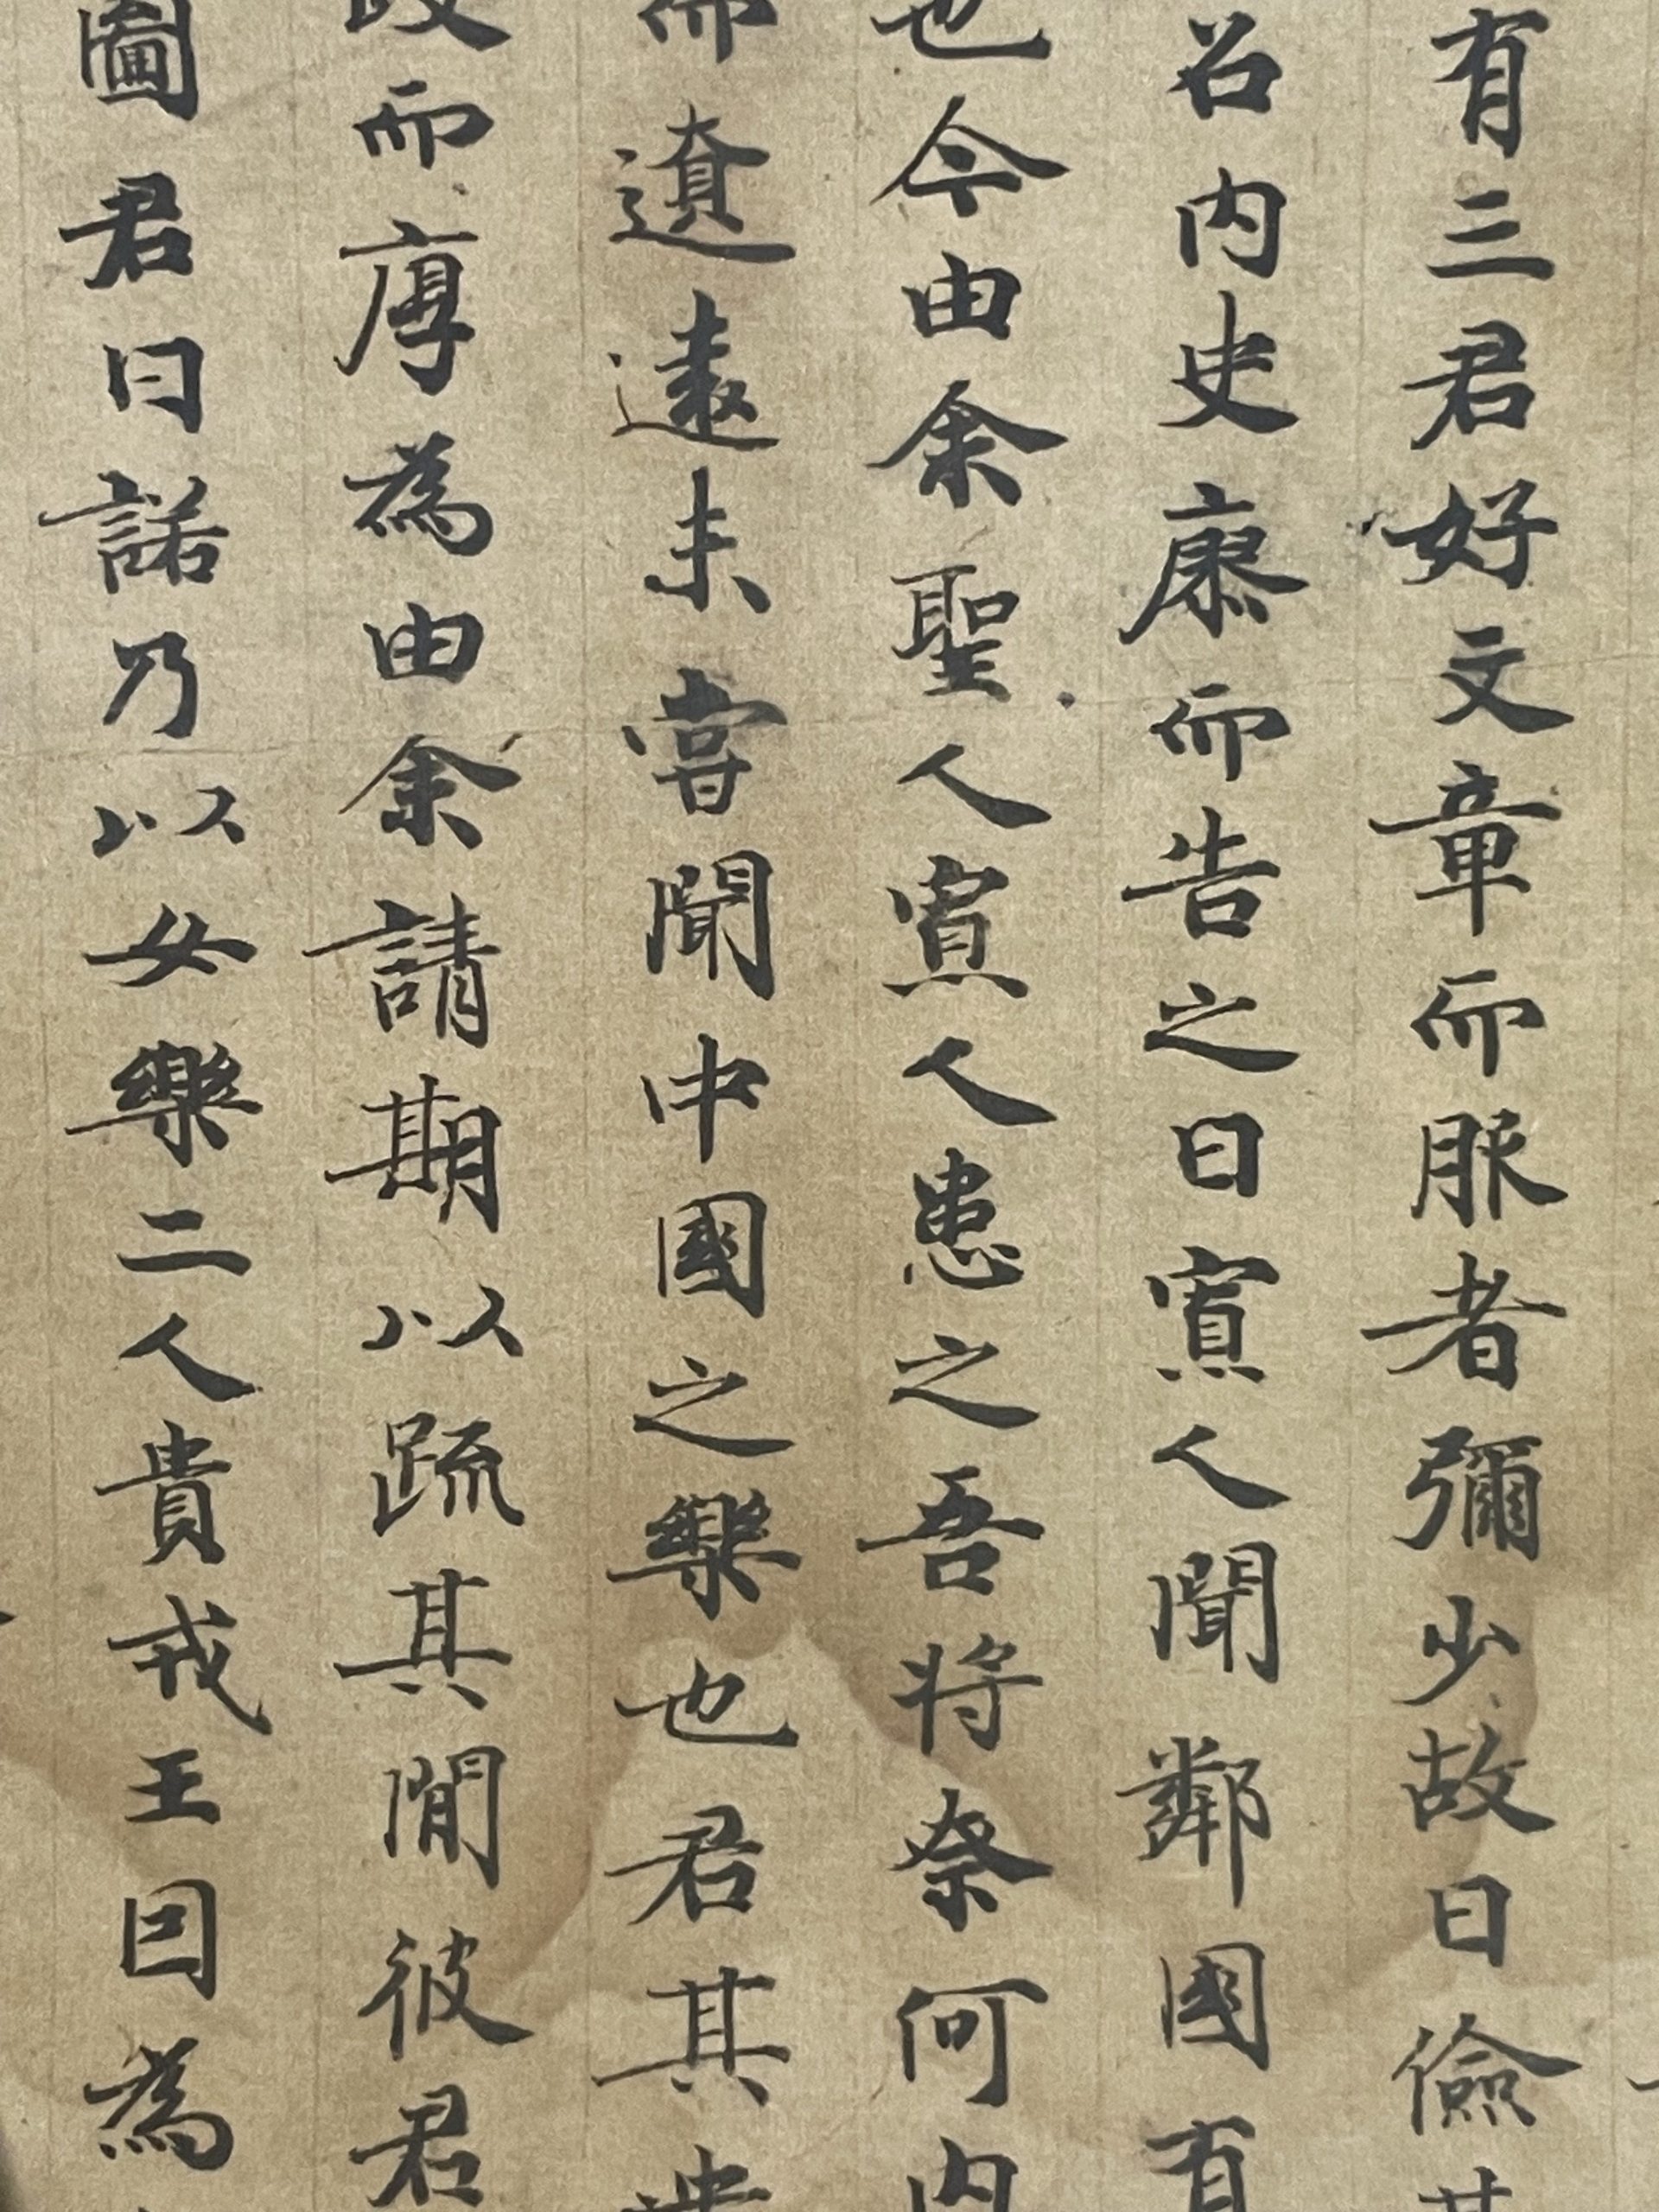 有三君好文章而服者彌少故曰儉其
召内史廖而告之曰寡人聞鄰國有
也今由余聖人寡人患之吾將奈何内
而遼遠未嘗聞中國之樂也君其
政而厚為由余請期以疏其間彼君
圖君曰諾乃以女樂二人貴戎王因為